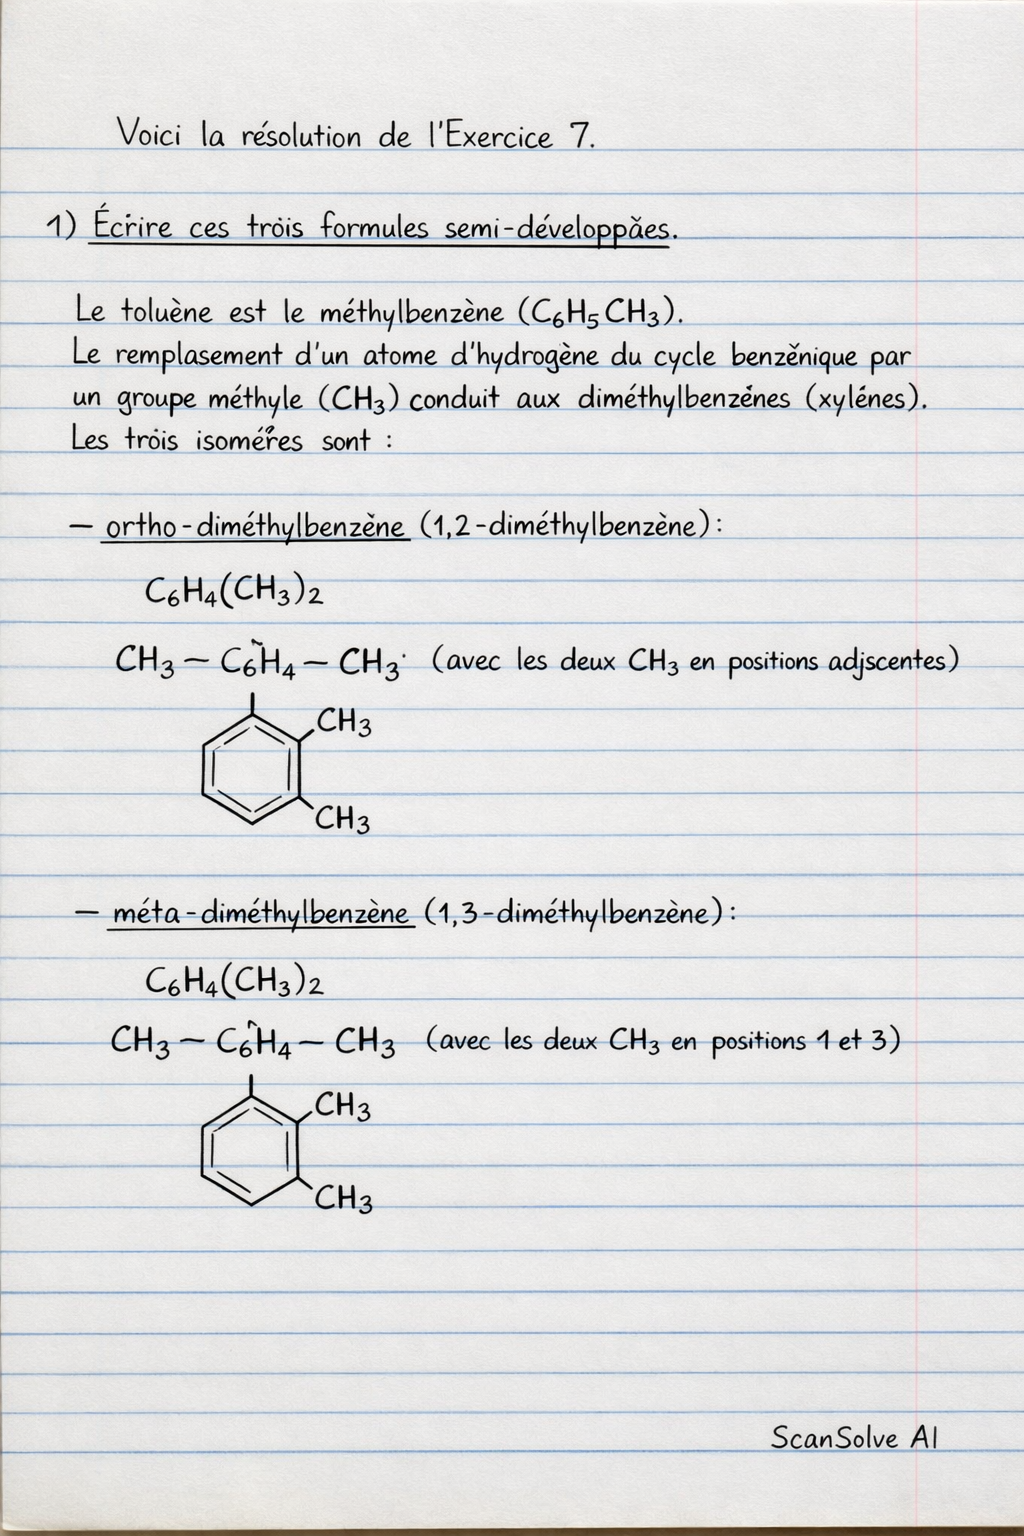 Voici la résolution de l'Exercice 7.
1) Écrire ces tròis formules semi-développǎes.
Le toluène est le méthylbenzène (C₆H₅CH₃).
Le remplasement d'un atome d'hydrogène du cycle benzěnique par
un groupe méthyle (CH₃) conduit aux diméthylbenzénes (xylénes).
Les tròis isoméres sont :
— ortho-diméthylbenzěne (1,2-diméthylbenzène):
C₆H₄(CH₃)₂
CH₃ — C₆H₄ — CH₃ (avec les deux CH₃ en positions adjscentes)
CH₃
CH₃
— méta-diméthylbenzène (1,3-diméthylbenzène):
C₆H₄(CH₃)₂
CH₃ — C₆H₄ — CH₃ (avec les deux CH₃ en positions 1 et 3)
CH₃
CH₃
ScanSolve AI